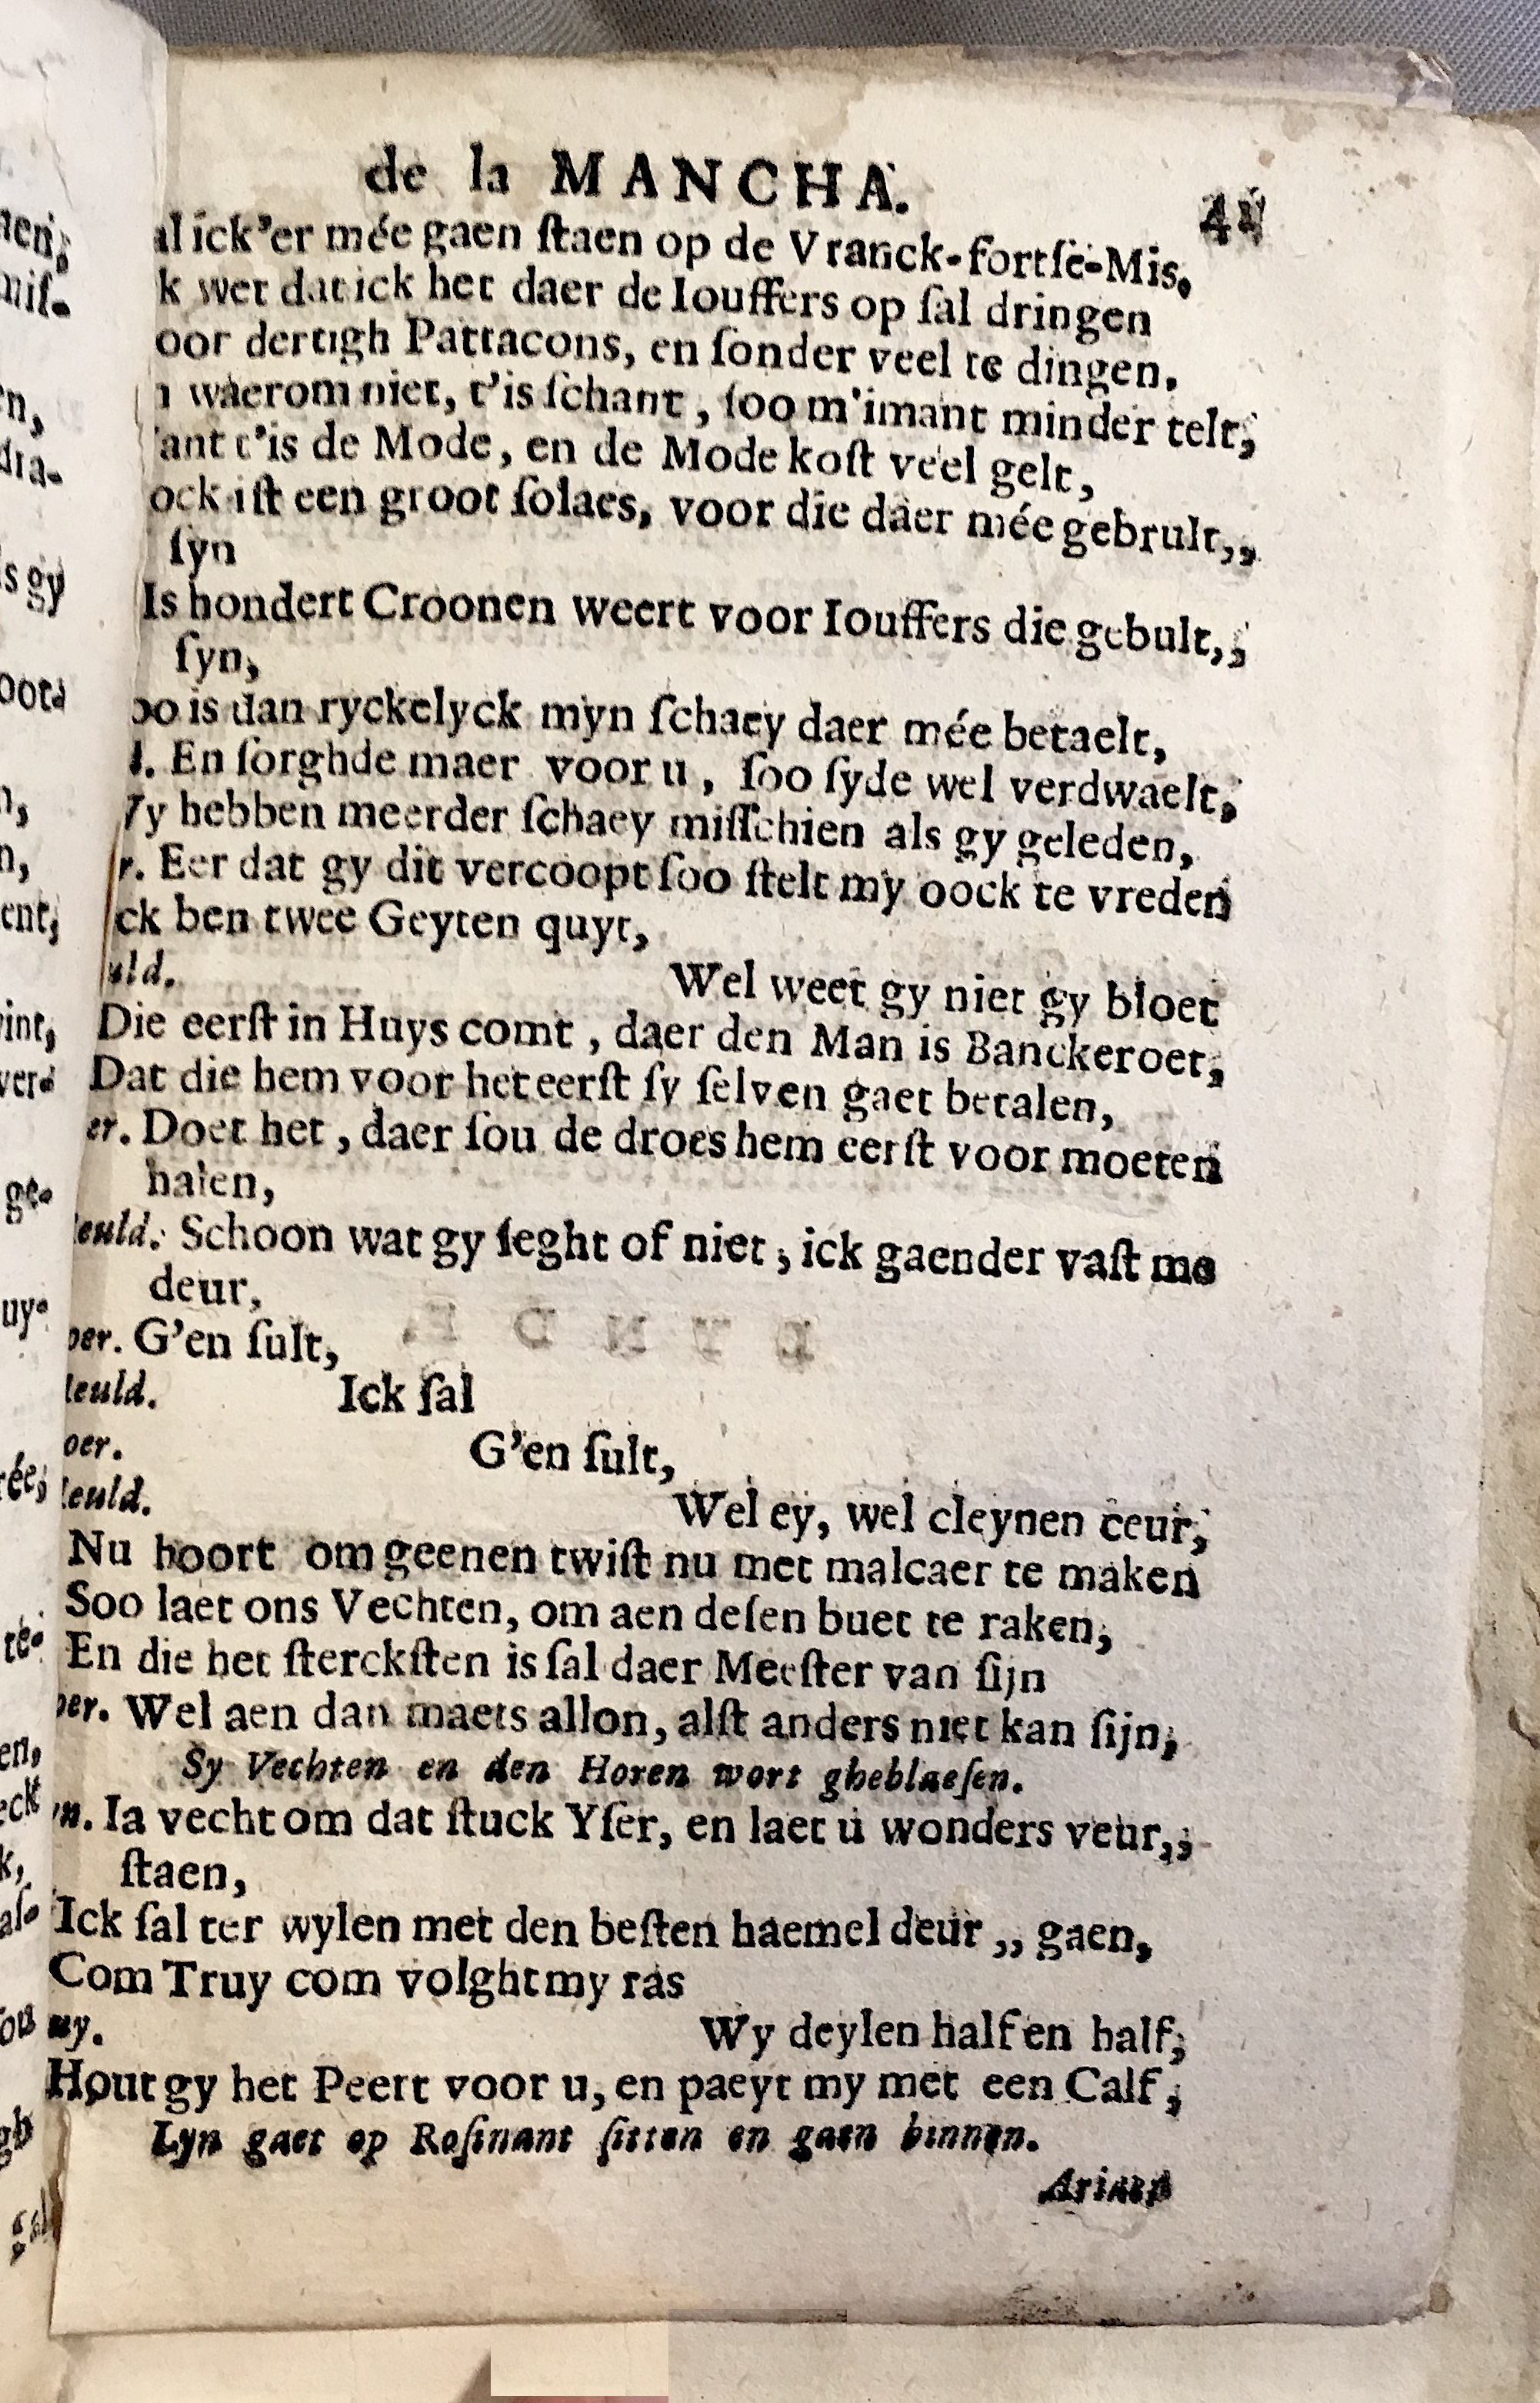 de la MANCHA.
al ick'er mée gaen ſtaen op de Vranck-fortſe-Mis.
k wet dat ick het daer de Iouffers op ſal dringen
oor dertigh Pattacons, en ſonder veel te dingen.
waerom niet, t'is ſchant, ſoo m'imant minder telt,
ant t'is de Mode, en de Mode koſt veel gelt,
ock iſt een groot ſolaes, voor die daer mée gebrult,,
ſyn
Is hondert Croonen weert voor Iouffers die gebult,,
ſyn,
oo is dan ryckelyck myn ſchaey daer mée betaelt,
l. En ſorghde maer voor u, ſoo ſyde wel verdwaelt,
y hebben meerder ſchaey miſſchien als gy geleden,
r. Eer dat gy dit vercoopt ſoo ſtelt my oock te vreden
ck ben twee Geyten quyt,
uld. Wel weet gy niet gy bloet
Die eerſt in Huys comt, daer den Man is Banckeroet,
Dat die hem voor het eerſt ſy ſelven gaet betalen,
er. Doet het, daer ſou de droes hem eerſt voor moeten
halen,
euld. Schoon wat gy ſeght of niet, ick gaender vaſt me
deur,
oer. G'en ſult,
euld. Ick ſal
oer. G'en ſult,
euld. Wel ey, wel cleynen ceur,
Nu hoort om geenen twiſt nu met malcaer te maken
Soo laet ons Vechten, om aen deſen buet te raken,
En die het ſterckſten is ſal daer Meeſter van ſijn
oer. Wel aen dan maets allon, alſt anders niet kan ſijn,
Sy Vechten en den Horen wort gheblaeſen.
yn. Ia vecht om dat ſtuck Yſer, en laet u wonders veur,,
ſtaen,
Ick ſal ter wylen met den beſten haemel deur,, gaen,
Com Truy com volght my ras
uy. Wy deylen half en half,
Hout gy het Peert voor u, en paeyt my met een Calf,
Lyn gaet op Roſinant ſitten en gaen binnen.
Ariaen